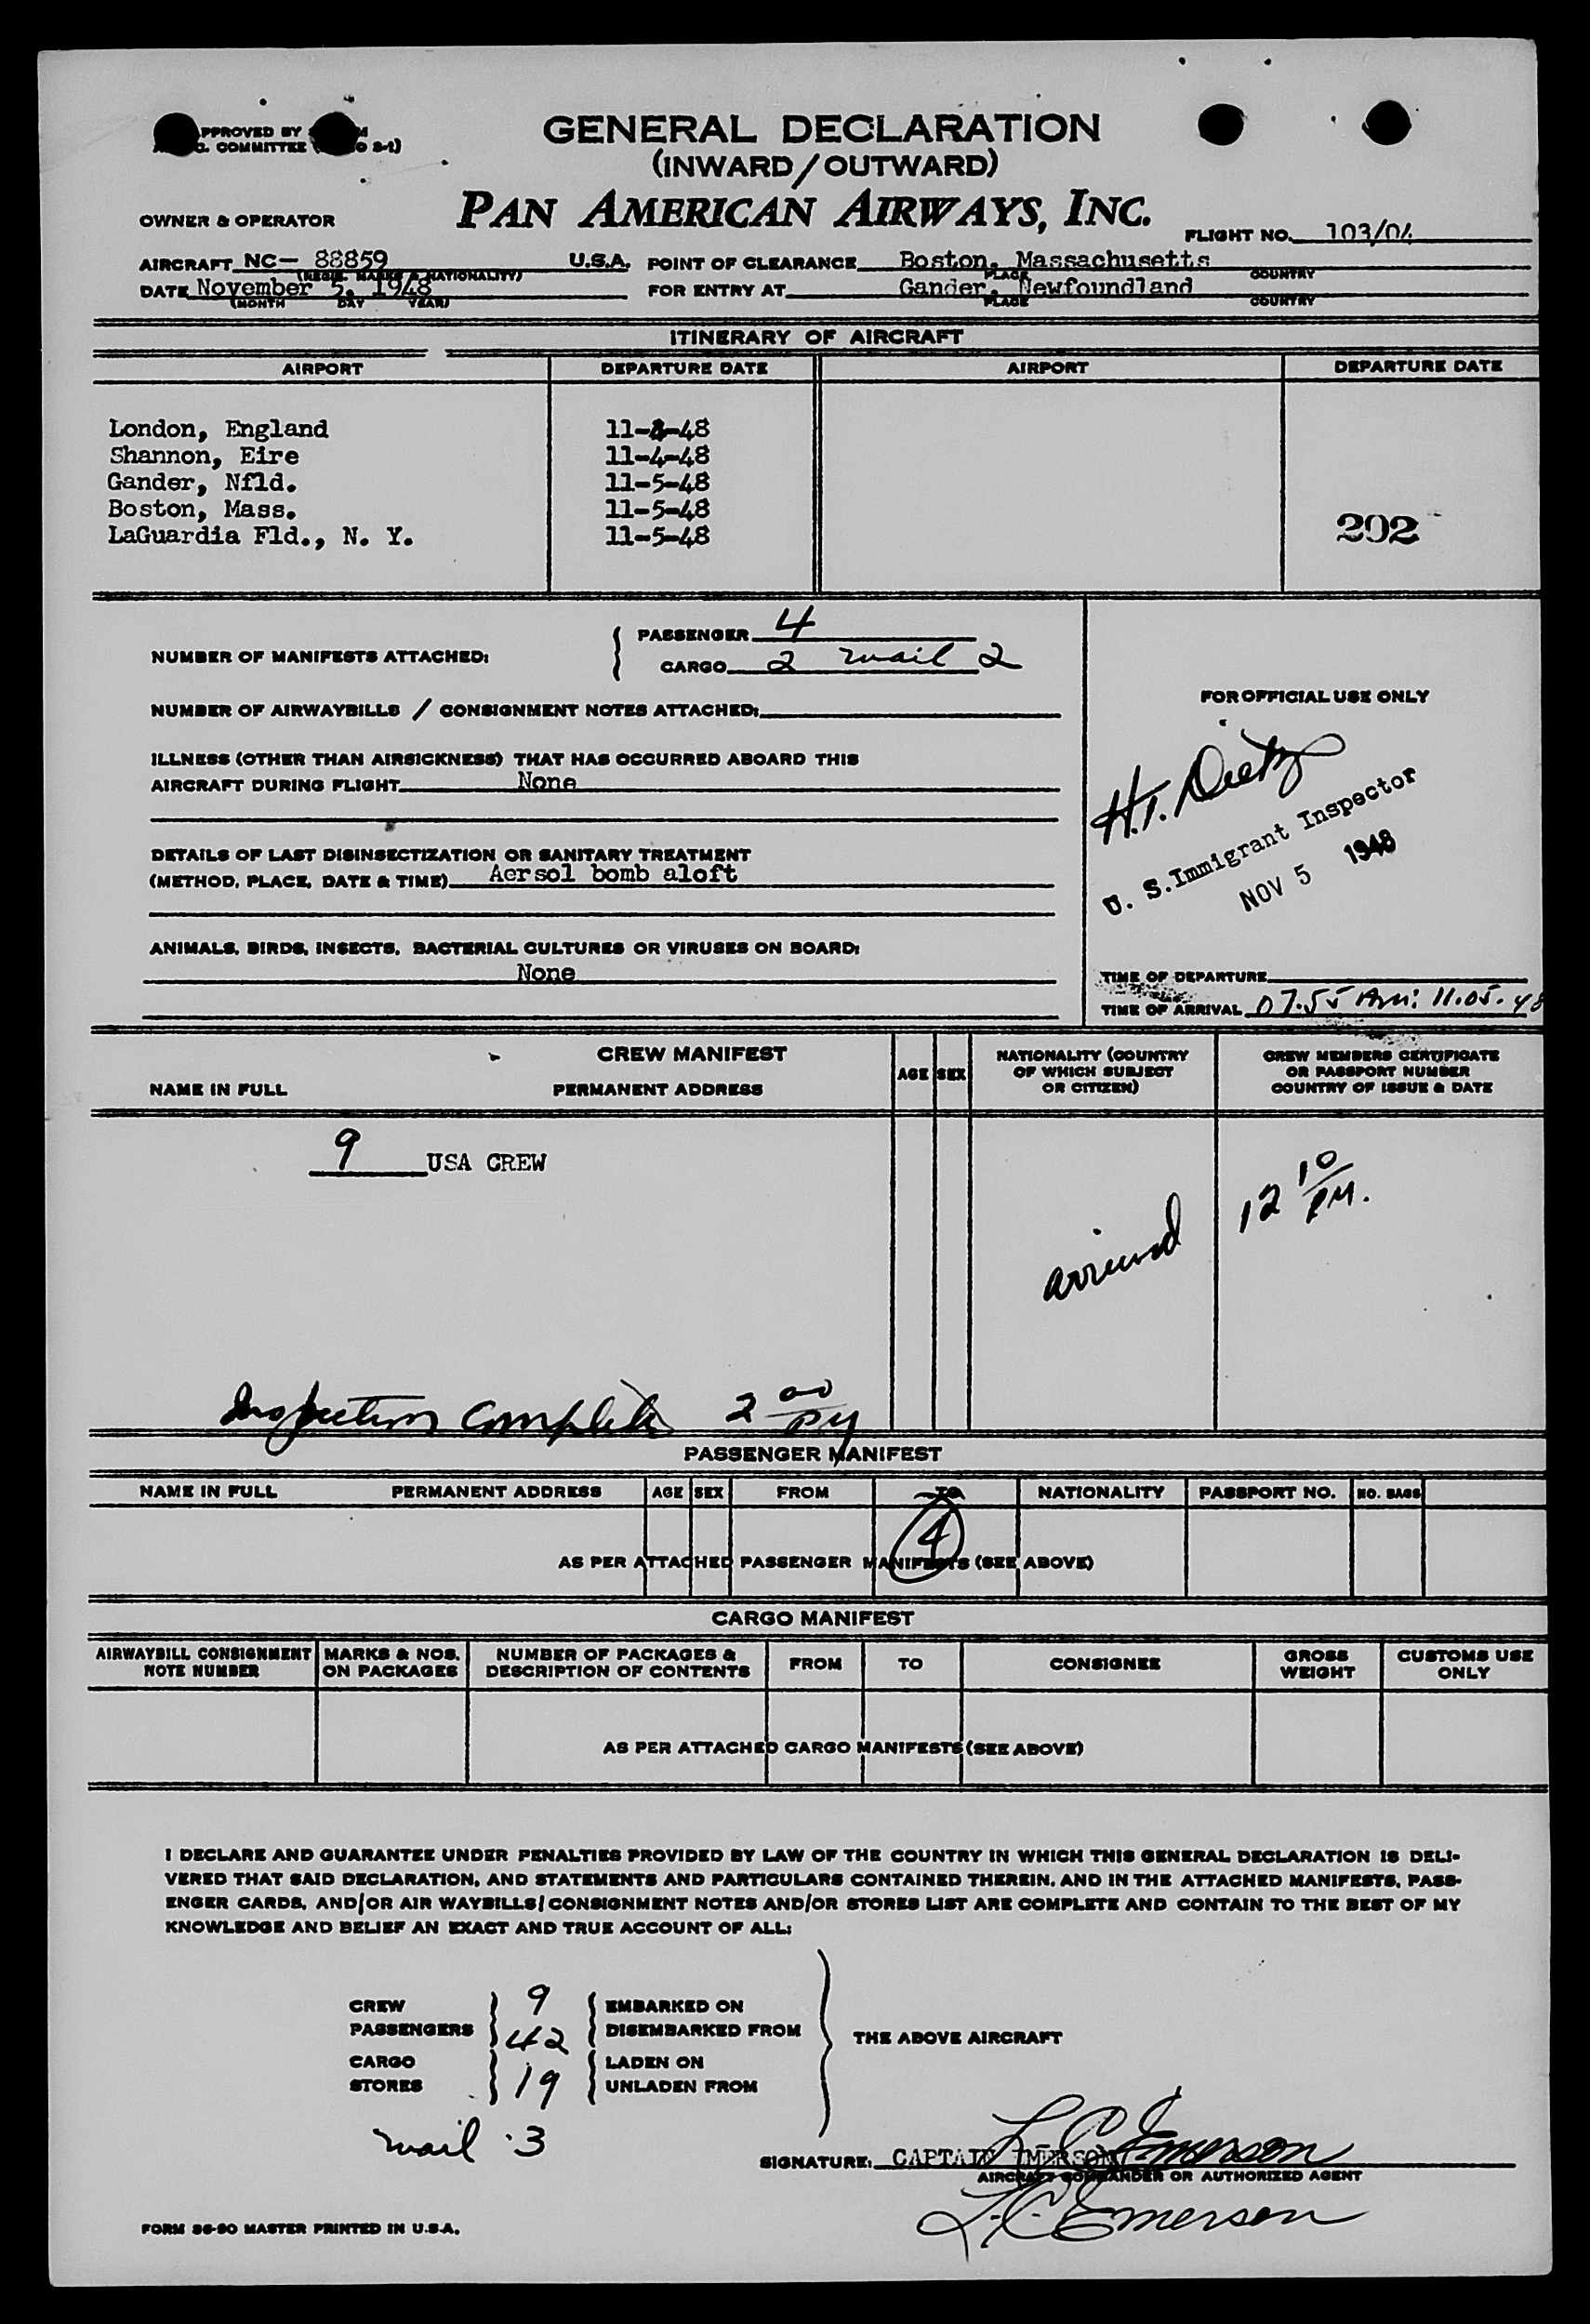 GENERAL DECLARATION
(INWARD/OUTWARD)
PAN AMERICAN AIRWAYS, INC.
PPROVED BY
COMMITTEE
OWNER & OPERATOR
FLIGHT NO. 103/04
AIRCRAFT NC- 88859 U.S.A. POINT OF CLEARANCE Boston, Massachusetts
(REGIS. MARKS & NATIONALITY) PLACE COUNTRY
DATE November 5, 1948 FOR ENTRY AT Gander, Newfoundland
(MONTH DAY YEAR) PLACE COUNTRY
ITINERARY OF AIRCRAFT
AIRPORT DEPARTURE DATE AIRPORT DEPARTURE DATE
London, England 11-4-48
Shannon, Eire 11-4-48
Gander, Nfld. 11-5-48
Boston, Mass. 11-5-48
LaGuardia Fld., N. Y. 11-5-48
292
NUMBER OF MANIFESTS ATTACHED: { PASSENGER 4
CARGO 2 mail 2
NUMBER OF AIRWAYBILLS / CONSIGNMENT NOTES ATTACHED:
ILLNESS (OTHER THAN AIRSICKNESS) THAT HAS OCCURRED ABOARD THIS
AIRCRAFT DURING FLIGHT None
DETAILS OF LAST DISINSECTIZATION OR SANITARY TREATMENT
(METHOD, PLACE, DATE & TIME) Aersol bomb aloft
ANIMALS, BIRDS, INSECTS, BACTERIAL CULTURES OR VIRUSES ON BOARD:
None
FOR OFFICIAL USE ONLY
H.T. Dietz
U. S. Immigrant Inspector
NOV 5 1948
TIME OF DEPARTURE
TIME OF ARRIVAL 07.55 AM: 11.05.48
CREW MANIFEST
NAME IN FULL PERMANENT ADDRESS AGE SEX NATIONALITY (COUNTRY OF WHICH SUBJECT OR CITIZEN) CREW MEMBERS CERTIFICATE OR PASSPORT NUMBER COUNTRY OF ISSUE & DATE
9 USA CREW
arrived 12 10 PM.
Inspection Complete 2 00 PM
PASSENGER MANIFEST
NAME IN FULL PERMANENT ADDRESS AGE SEX FROM TO NATIONALITY PASSPORT NO. NO. BAGS
4
AS PER ATTACHED PASSENGER MANIFESTS (SEE ABOVE)
CARGO MANIFEST
AIRWAYBILL CONSIGNMENT NOTE NUMBER MARKS & NOS. ON PACKAGES NUMBER OF PACKAGES & DESCRIPTION OF CONTENTS FROM TO CONSIGNEE GROSS WEIGHT CUSTOMS USE ONLY
AS PER ATTACHED CARGO MANIFESTS (SEE ABOVE)
I DECLARE AND GUARANTEE UNDER PENALTIES PROVIDED BY LAW OF THE COUNTRY IN WHICH THIS GENERAL DECLARATION IS DELI-
VERED THAT SAID DECLARATION, AND STATEMENTS AND PARTICULARS CONTAINED THEREIN, AND IN THE ATTACHED MANIFESTS, PASS-
ENGER CARDS, AND/OR AIR WAYBILLS/CONSIGNMENT NOTES AND/OR STORES LIST ARE COMPLETE AND CONTAIN TO THE BEST OF MY
KNOWLEDGE AND BELIEF AN EXACT AND TRUE ACCOUNT OF ALL:
CREW 9 EMBARKED ON
PASSENGERS 42 DISEMBARKED FROM
THE ABOVE AIRCRAFT
CARGO LADEN ON
STORES 19 UNLADEN FROM
mail 3
SIGNATURE: CAPTAIN EMERSON L C Emerson
AIRCRAFT COMMANDER OR AUTHORIZED AGENT
L.C. Emerson
FORM 36-90 MASTER PRINTED IN U.S.A.